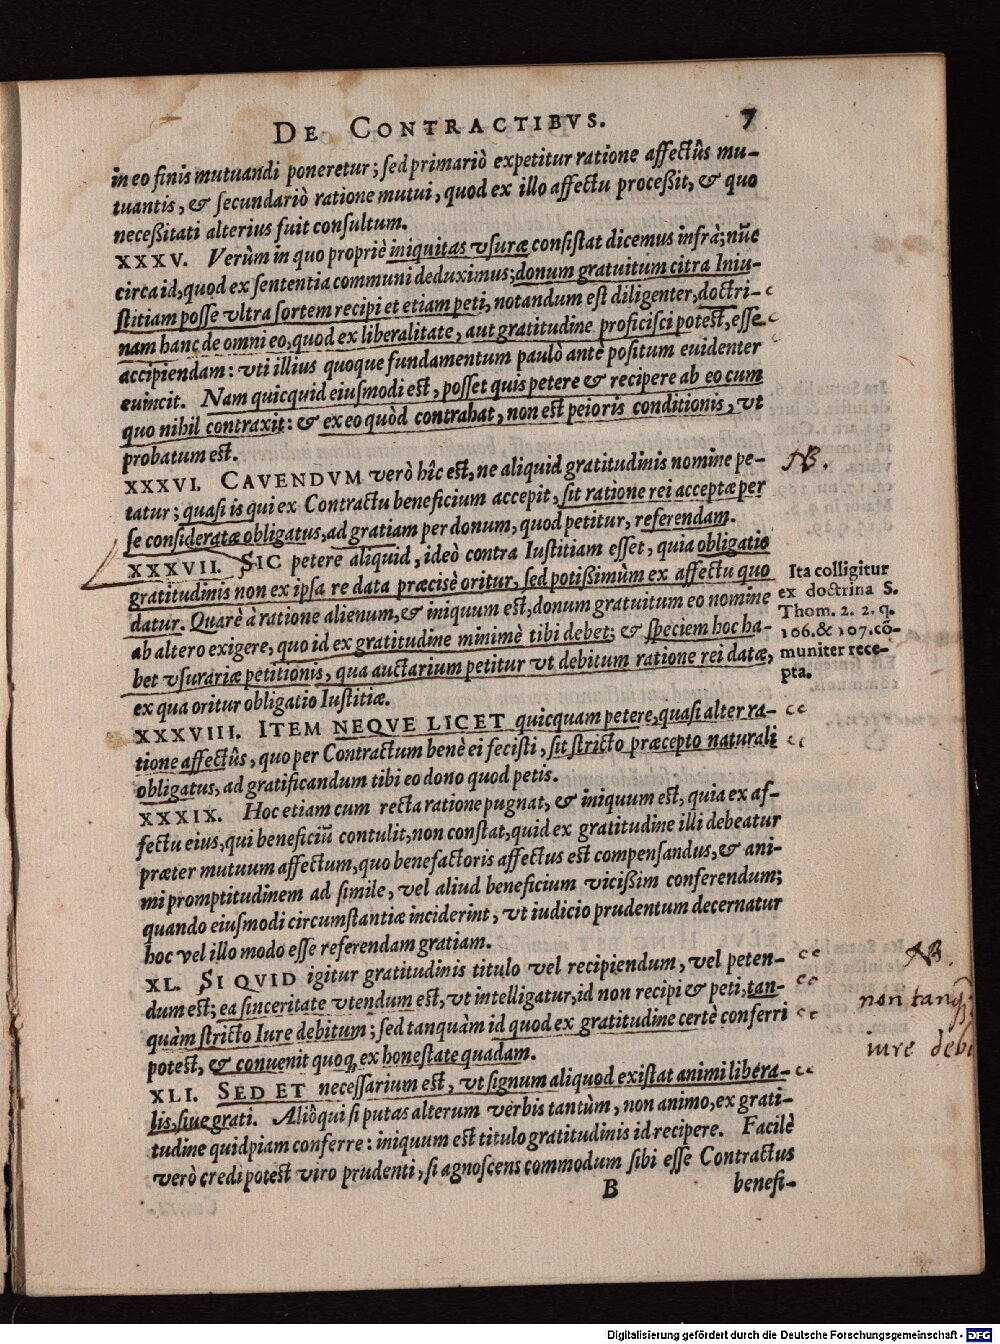 DE CONTRACTIBVS. 7
in eo finis mutuandi poneretur; sed primariò expetitur ratione affectûs mu-
tuantis, & secundariò ratione mutui, quod ex illo affectu proceßit, & quo
neceßitati alterius fuit consultum.
XXXV. Verùm in quo propriè iniquitas vsuræ consistat dicemus infrà; nũc
circa id, quod ex sententia communi deduximus; donum gratuitum citra Iniu-
stitiam posse vltra sortem recipi et etiam peti, notandum est diligenter, doctri-
nam hanc de omni eo, quod ex liberalitate, aut gratitudine proficisci potest, esse
accipiendam: vti illius quoque fundamentum paulò antè positum euidenter
euincit. Nam quicquid eiusmodi est, posset quis petere & recipere ab eo cum
quo nihil contraxit: & ex eo quòd contrahat, non est peioris conditionis, vt
probatum est.
XXXVI. CAVENDVM verò hîc est, ne aliquid gratitudinis nomine pe-
tatur; quasi is qui ex Contractu beneficium accepit, sit ratione rei acceptæ per
se consideratæ obligatus, ad gratiam per donum, quod petitur, referendam.
NB.
XXXVII. SIC petere aliquid, ideò contra Iustitiam esset, quia obligatio
gratitudinis non ex ipsa re data præcisè oritur, sed potißimùm ex affectu quo
datur. Quarè à ratione alienum, & iniquum est, donum gratuitum eo nomine
ab altero exigere, quo id ex gratitudine minimè tibi debet; & speciem hoc ha-
bet vsurariæ petitionis, qua auctarium petitur vt debitum ratione rei datæ,
ex qua oritur obligatio Iustitiæ.
Ita colligitur
ex doctrina S.
Thom. 2. 2. q.
106. & 107. cõ-
muniter rece-
pta.
XXXVIII. ITEM NEQVE LICET quicquam petere, quasi alter ra-
tione affectûs, quo per Contractum benè ei fecisti, sit stricto præcepto naturali
obligatus, ad gratificandum tibi eo dono quod petis.
XXXIX. Hoc etiam cum recta ratione pugnat, & iniquum est, quia ex af-
fectu eius, qui beneficiũ contulit, non constat, quid ex gratitudine illi debeatur
præter mutuum affectum, quo benefactoris affectus est compensandus, & ani-
mi promptitudinem ad simile, vel aliud beneficium vicißim conferendum;
quando eiusmodi circumstantiæ inciderint, vt iudicio prudentum decernatur
hoc vel illo modo esse referendam gratiam.
XL. SI QVID igitur gratitudinis titulo vel recipiendum, vel peten-
dum est; ea sinceritate vtendum est, vt intelligatur, id non recipi & peti, tan-
quàm stricto Iure debitum; sed tanquàm id quod ex gratitudine certè conferri
potest, & conuenit quoq, ex honestate quadam.
NB.
non tanq̃
iure debi
XLI. SED ET necessarium est, vt signum aliquod existat animi libera-
lis, siue grati. Aliôqui si putas alterum verbis tantùm, non animo, ex grati-
tudine quidpiam conferre: iniquum est titulo gratitudinis id recipere. Facilè
verò credi potest viro prudenti, si agnoscens commodum sibi esse Contractus
B benefi-
Digitalisierung gefördert durch die Deutsche Forschungsgemeinschaft - DFG